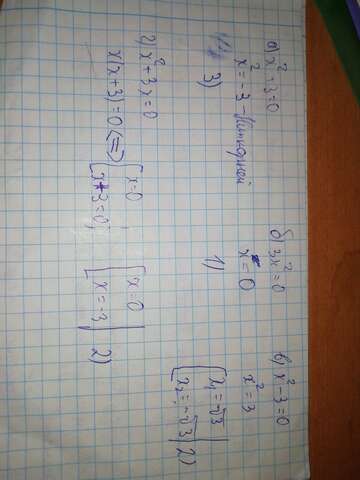 а) x² - 3 = 0
x² = -3 - нет корней
3)
б) 3x² = 0
x = 0
1)
в) x² - 3 = 0
x² = 3
[x₁ = √3
[x₂ = -√3 2)
г) x² + 3x = 0
x(x + 3) = 0 <=> [x = 0 [x = 0
[x + 3 = 0; [x = -3 2)